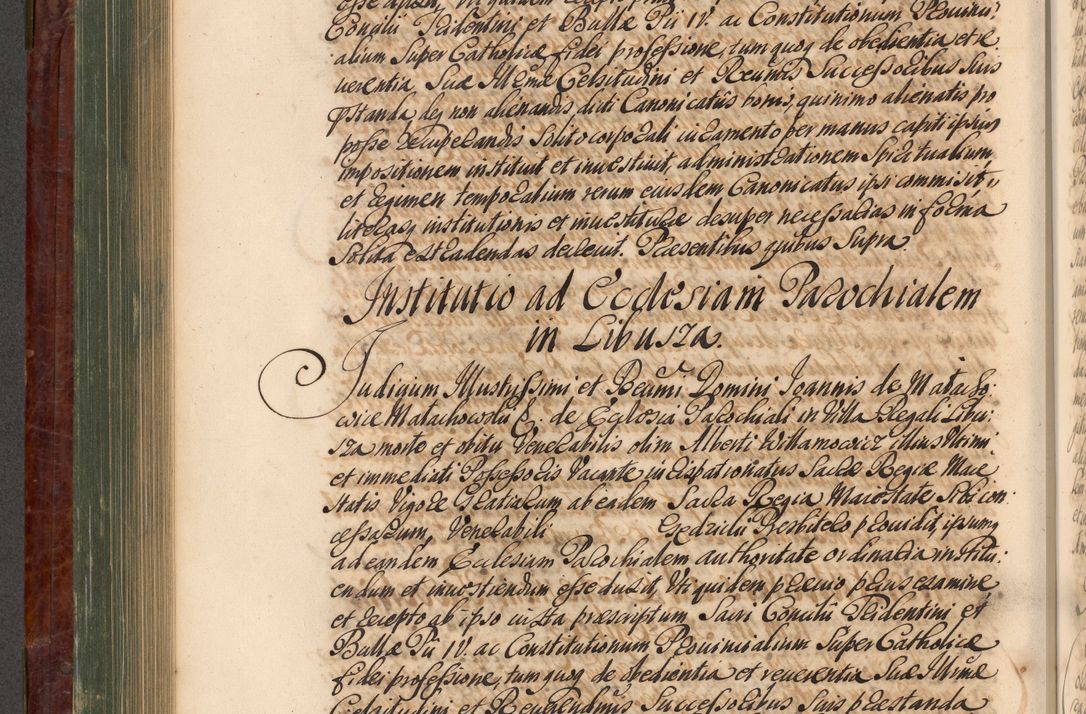 Concilii Tridentini et Bullæ Pii IV. ac Constitutionum Provinci:
alium Super Catholicæ fidei professione, tum quoq de obedientia et re:
uerentia Suæ Illmæ Celsitudini et Reuñdis Successoribus Suis
pstanda, deq non alienandis dicti Canonicatûs bonis, quinimo alienatis pro
posse recuperandis Solito corporali iuramento per manus capiti ipsius
impositionem instituit et inuestiuit, administrationem Spiritualium
et regimen temporalium rerum eiusdem Canonicatus ipsi commisit,
literasq institutionis et inuestituræ desuper necessarias in forma
Solita extradendas decreuit. Præsentibus quibus Supra
Institutio ad Ecclesiam Parochialem
in Libusza.
Judicium Illustrissimi et Reuñdi Domini Joannis de Małacho:
wice Małachowski de Ecclesia Parochiali in Villa Regali Libu:
sza morte et obitu Venerabilis olim Alberti Willamowicz illius Ultimi
et immediati Possessoris Vacante iurispatronatus Sacræ Regiæ Maie
statis Vigore Gratiarum ab eadem Sacra Regia Maiestate Sibi con:
cessarum, Venerabili Gedzicki Presbitero prouidit, ipsumq
ad eandem Ecclesiam Parochialem authoritate ordinaria institu:
endum et inuestiendum esse duxit, Uti quidem præuio prius examine
et recepto ab ipso iuxta præscriptum Sacri Concilii Tridentini et
Bullæ Pii IV. ac Constitutionum Prouincialium Super Catholicæ
fidei professione, tum quoq de obedientia et reuerentia Suæ Illmæ
Celsitudini et Reuerendmis Successoribus Suis præstanda